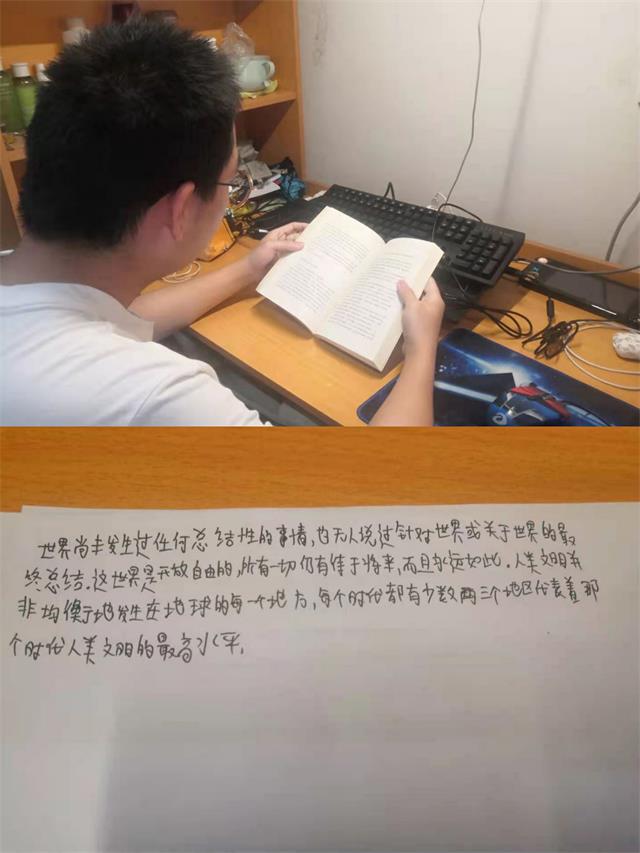 世界尚未发生过任何总结性的事情,也无人说过针对世界或关于世界的最
终总结.这世界是开放自由的,所有一切仍有待于将来,而且永远如此.人类文明并
非均衡地发生在地球的每一个地方,每个时代都有少数两三个地区代表着那
个时代人类文明的最高水平.